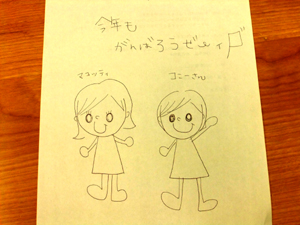 今年も
がんばろうぜぃ
マユッティ
ヨニーさん